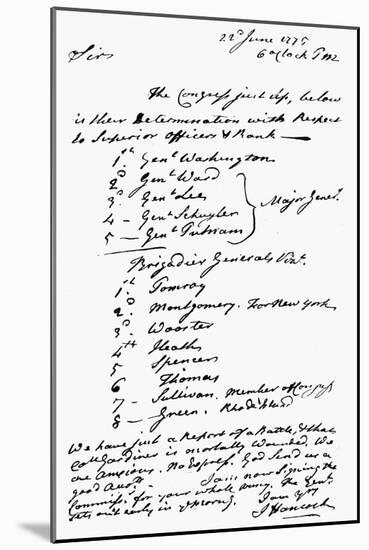 22d June 1775
6 oClock PM
Sir
The Congress just up, below
is their Determination with Respect
to Superior Officers & Rank —
1st. Genl. Washington
2d Genl. Ward
3d Genl. Lee
4 - Genl. Schuyler
5 - Genl. Putnam
Major Generls.
Brigadier Generals Vizt.
1st. Pomroy
2d. Montgomery. For New York
3d. Wooster
4th Heath
5 Spencer
6 Thomas
7 - Sullivan. Member of Congress
8 - Green. Rhode Island
We have just a Report of a Battle, & that
Coll Gardiner is mortally Wounded. We
are Anxious. No Express. God Send us a
good Acct. - I am now Signing the
Commiss. for your whole Army. The Genl.
Sets out early in ye morng. I am Yrs
J Hancock